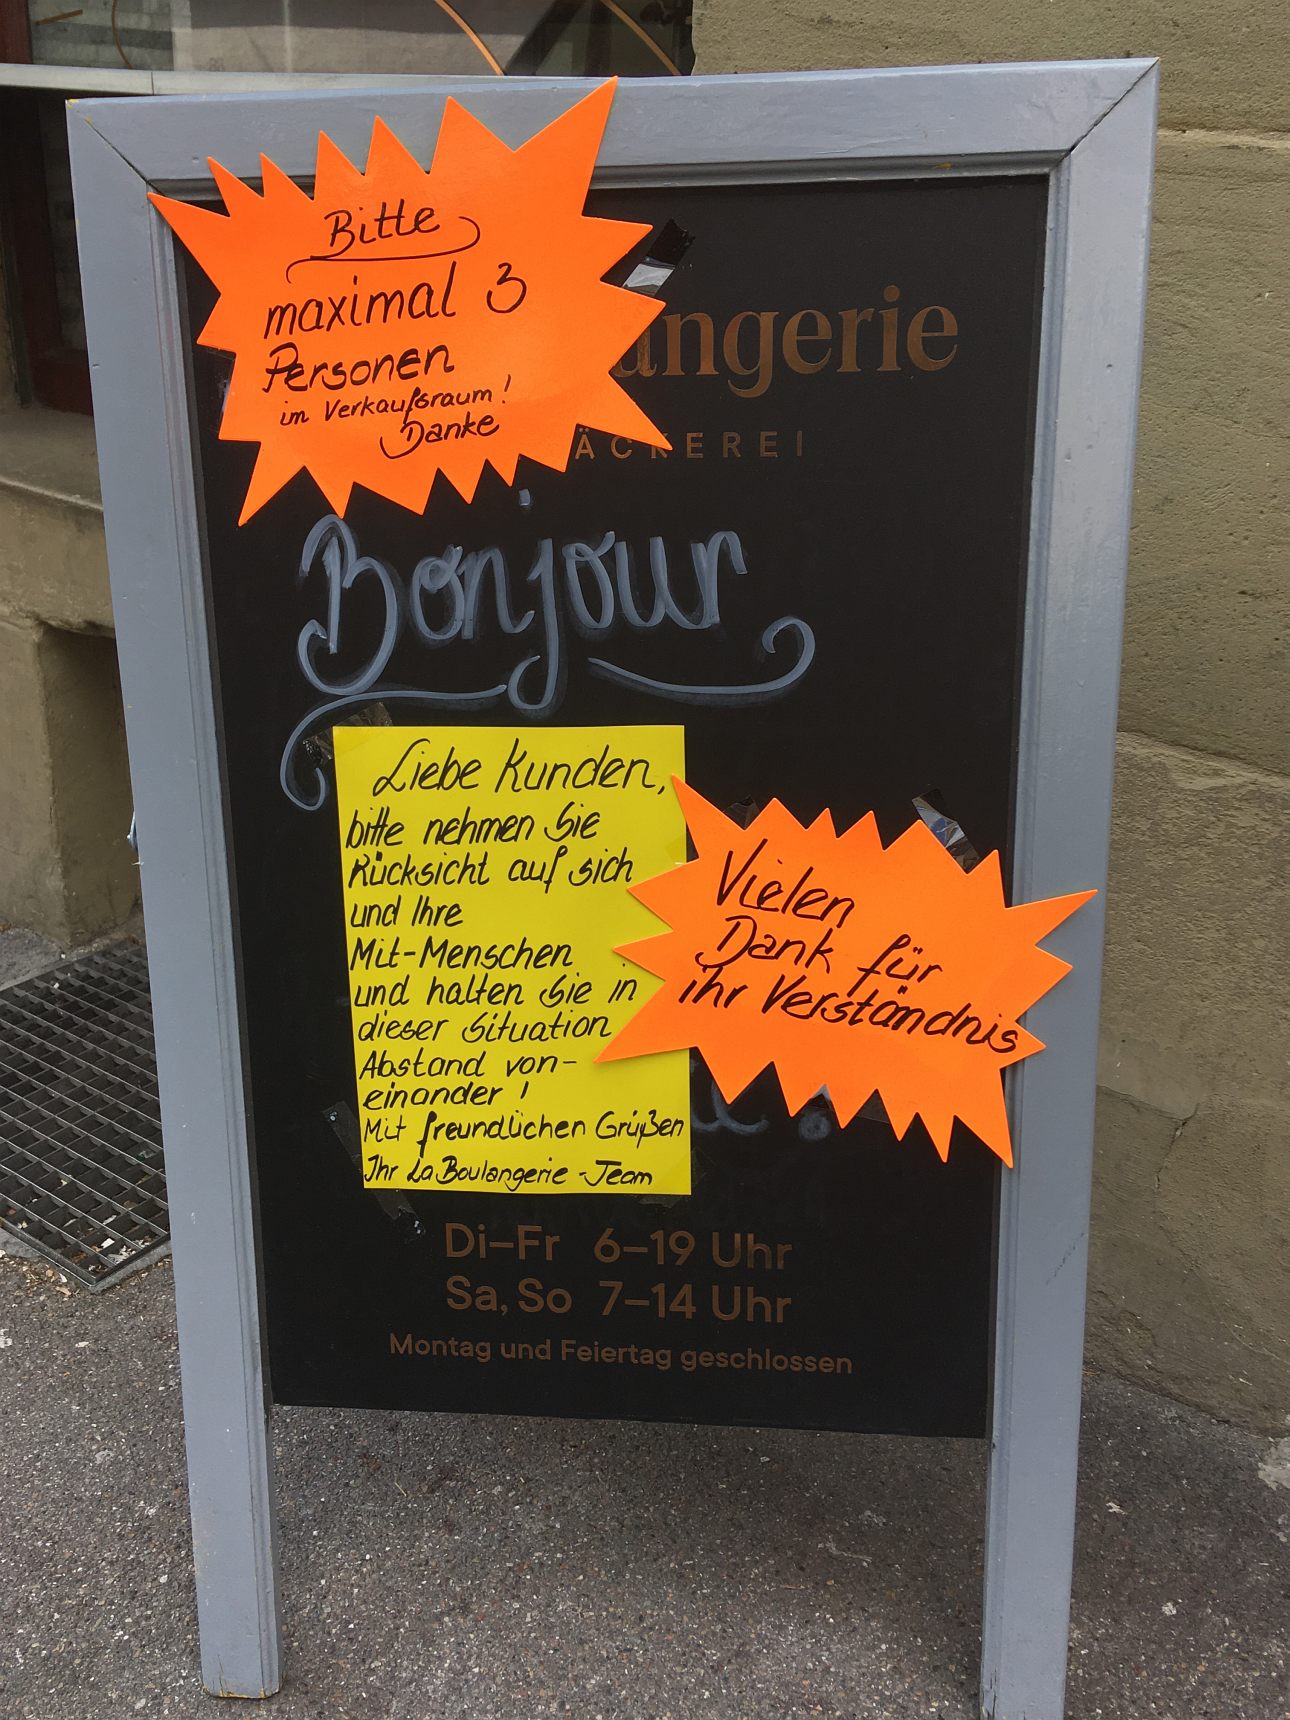 Bitte
maximal 3
Personen
im Verkaufsraum!
Danke
angerie
ÄCKEREI
Bonjour
Liebe Kunden,
bitte nehmen Sie
Rücksicht auf sich
und Ihre
Mit-Menschen
und halten Sie in
dieser Situation
Abstand von-
einander!
Mit freundlichen Grüßen
Ihr La Boulangerie-Team
Vielen
Dank für
ihr Verständnis
Di–Fr 6–19 Uhr
Sa, So 7–14 Uhr
Montag und Feiertag geschlossen